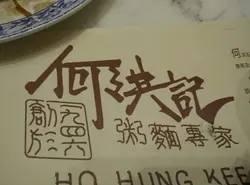 何洪記
創於
一九四六
粥麵專家
HO HUNG KEE
何